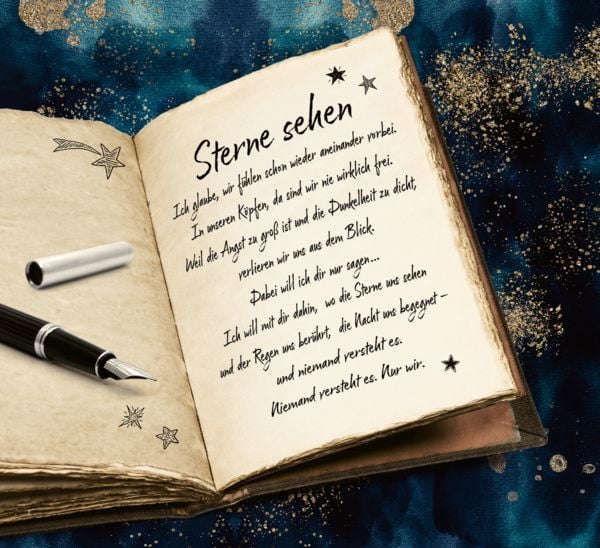 Sterne sehen
Ich glaube, wir fühlen schon wieder aneinander vorbei.
In unseren Köpfen, da sind wir nie wirklich frei.
Weil die Angst zu groß ist und die Dunkelheit zu dicht,
verlieren wir uns aus dem Blick.
Dabei will ich dir nur sagen...
Ich will mit dir dahin, wo die Sterne uns sehen
und der Regen uns berührt, die Nacht uns begegnet –
und niemand versteht es.
Niemand versteht es. Nur wir.